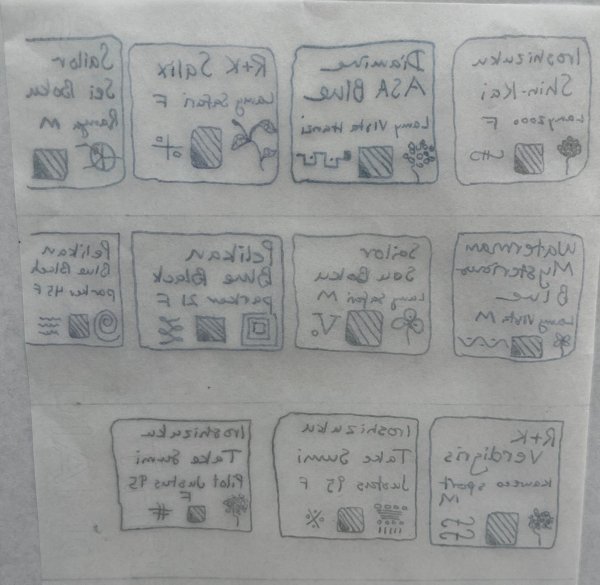 Iroshizuku
Shin-Kai
Lamy 2000 F
Diamine
ASA Blue
Lamy Vista Hanzi
R+K Salix
Lamy Safari F
Sailor
Sei Boku
M
Waterman
Mysterious
Blue
Lamy Vista M
Sailor
Sou Boku
Lamy Safari M
Pelikan
Blue Black
parker 21 F
Pelikan
Blue Black
parker 45 F
R+K
Verdigris
Kaweco sport
M
Iroshizuku
Take Sumi
Justus 95 F
Iroshizuku
Take Sumi
Pilot Justus 95
F